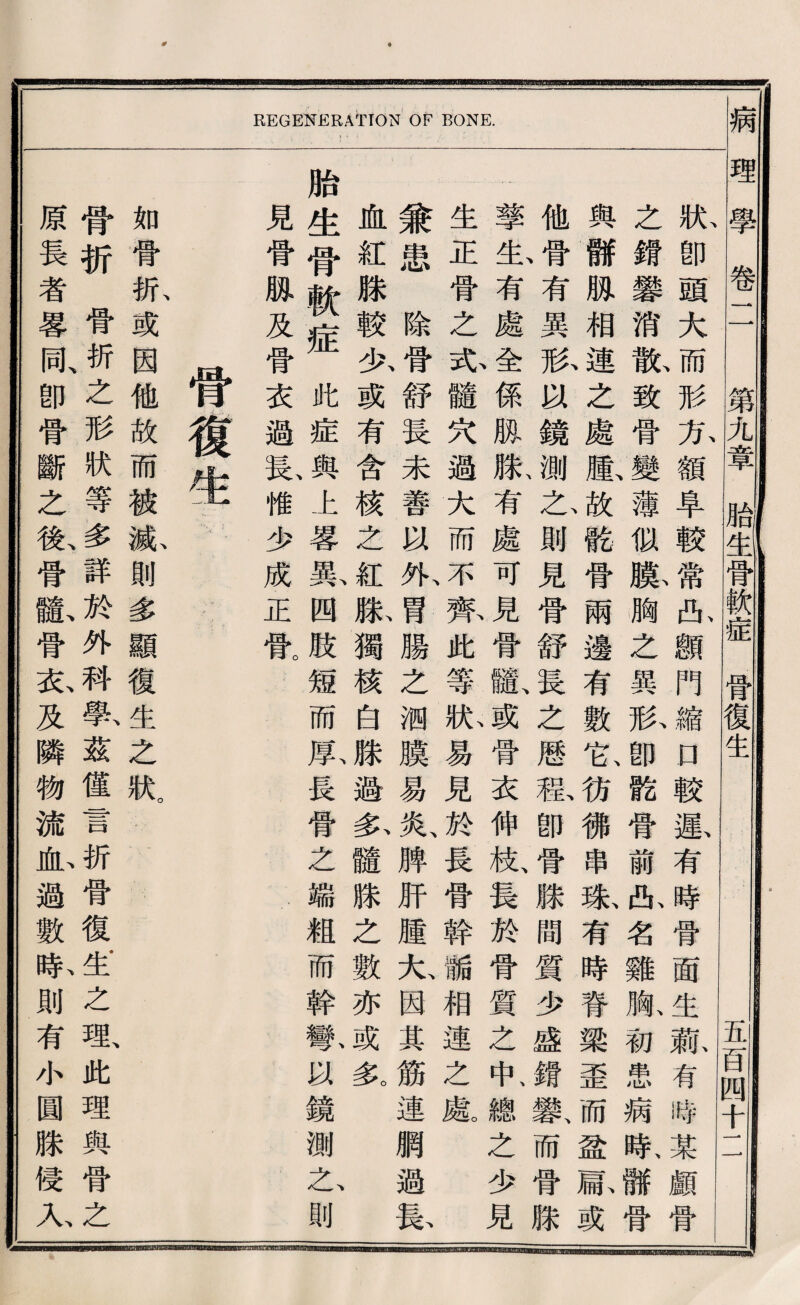 REGENERATION OF BONE.
病理學 卷二 第九章 胎生骨軟症 骨復生 五百四十二
狀、卽頭大而形方、額阜較常凸、顖門縮口較遲、有時骨面生莿、有時某顱骨
之鎉礬消散、致骨變薄似膜、胸之異形、卽骱骨前凸、名雞胸、初患病時、骿骨
與骿脵相連之處腫、故骱骨兩邊有數它、彷彿串珠、有時脊梁歪而盆扁、或
他骨有異形、以鏡測之、則見骨舒長之歷程、卽骨朕間質少盛鎉礬、而骨朕
孳生、有處全係脵朕、有處可見骨髓、或骨衣伸枝、長於骨質之中、總之少見
生正骨之式、髓穴過大而不齊、此等狀、易見於長骨幹骺相連之處。
兼患 除骨舒長未善以外、胃腸之泗膜易炎、脾肝腫大、因其筋連膶過長、
血紅朕較少、或有含核之紅朕、獨核白朕過多、髓朕之數亦或多。
胎生骨軟症 此症與上畧異、四肢短而厚、長骨之端粗而幹彎、以鏡測之、則
見骨脵及骨衣過長、惟少成正骨。
骨復生
如骨折、或因他故而被滅、則多顯復生之狀。
骨折 骨折之形狀等多詳於外科學、茲僅言折骨復生之理、此理與骨之
原長者畧同、卽骨斷之後、骨髓、骨衣、及隣物流血、過數時、則有小圓朕侵入、